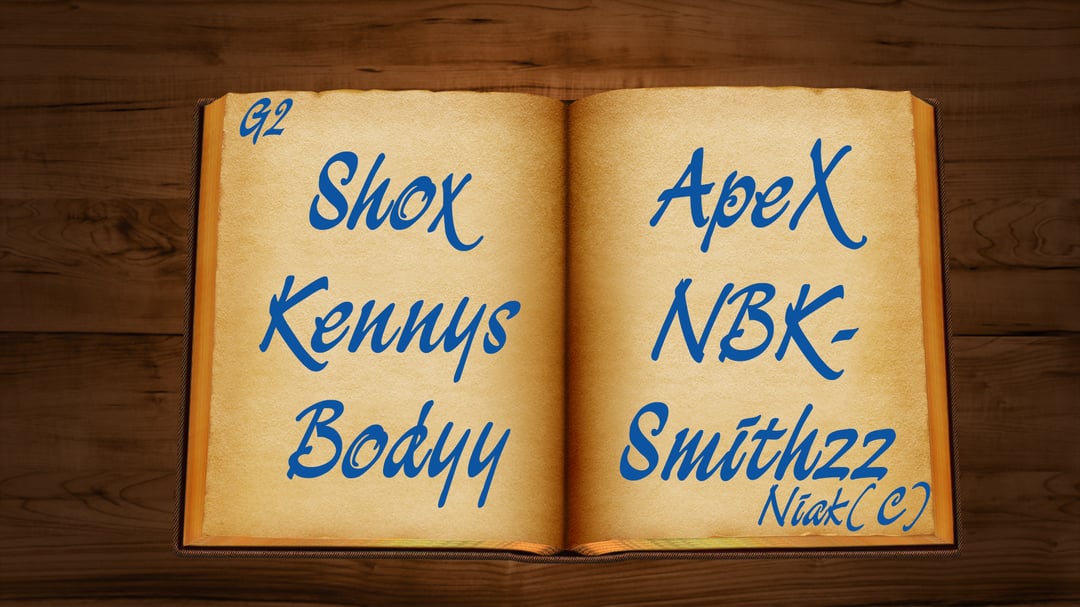 G2
Shox
Kennys
Bodyy
ApeX
NBK-
Smithzz
Niak(C)